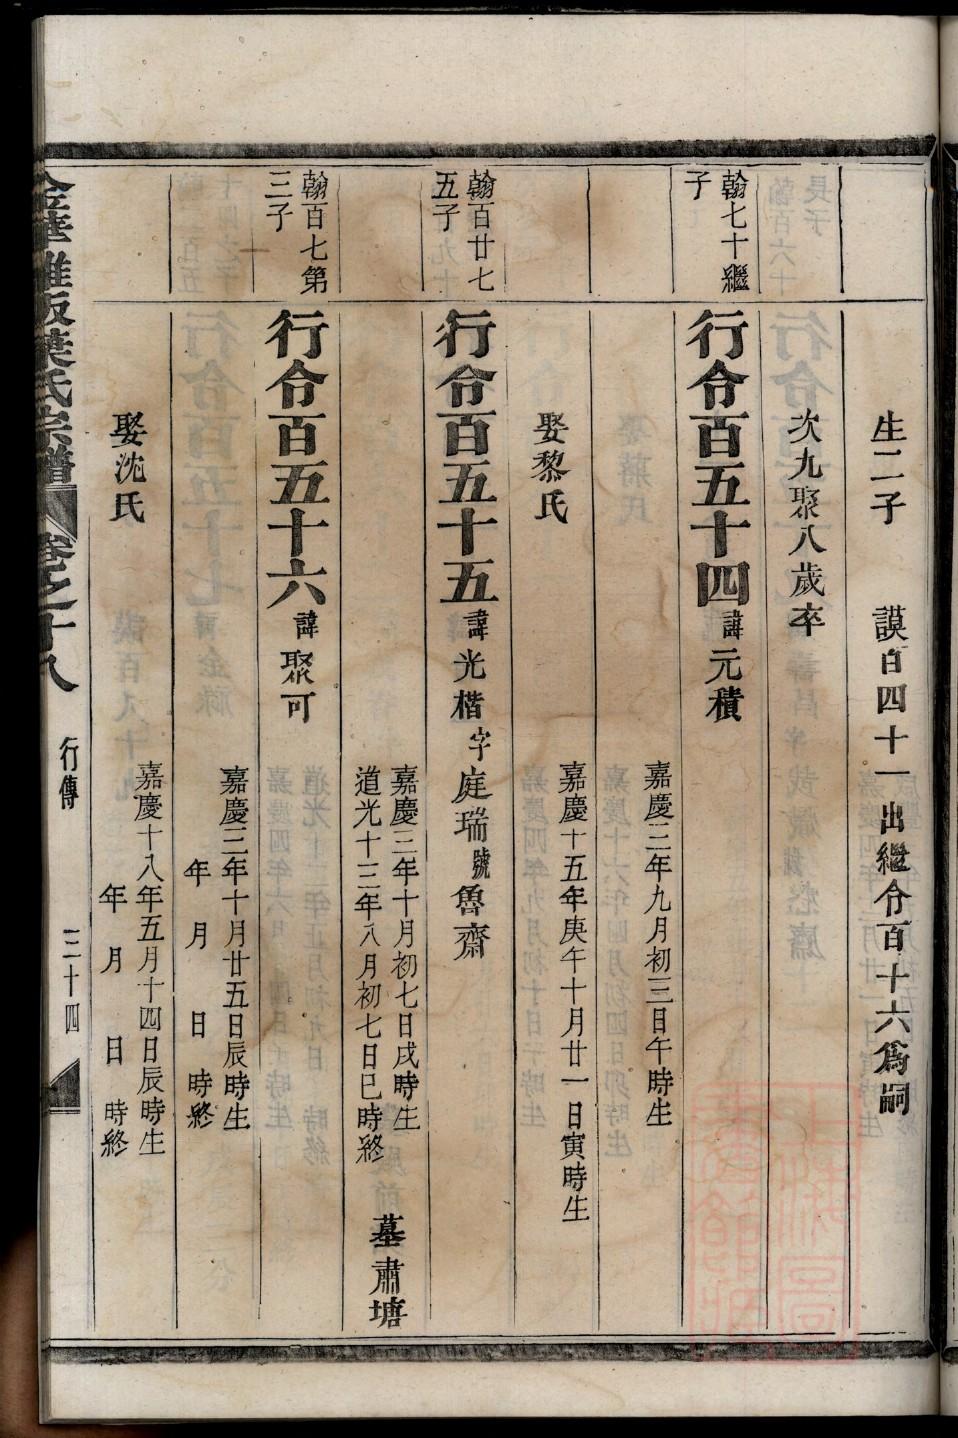 生二子　謨百四十一出繼令百十六爲嗣
次九聚八歲卒
翰七十繼子
行令百五十四諱元積
嘉慶三年九月初三日午時生
娶黎氏
嘉慶十五年庚午十月廿一日寅時生
翰百廿七五子
行令百五十五諱光楷字庭瑞號魯齋
嘉慶三年十月初七日戌時生
道光十三年八月初七日巳時終
墓肅塘
翰百七第三子
行令百五十六諱聚可
嘉慶三年十月廿五日辰時生
年　月　日　時終
娶沈氏
嘉慶十八年五月十四日辰時生
年　月　日　時終
金華雅畈葉氏宗譜
卷之十八
行傳
三十四